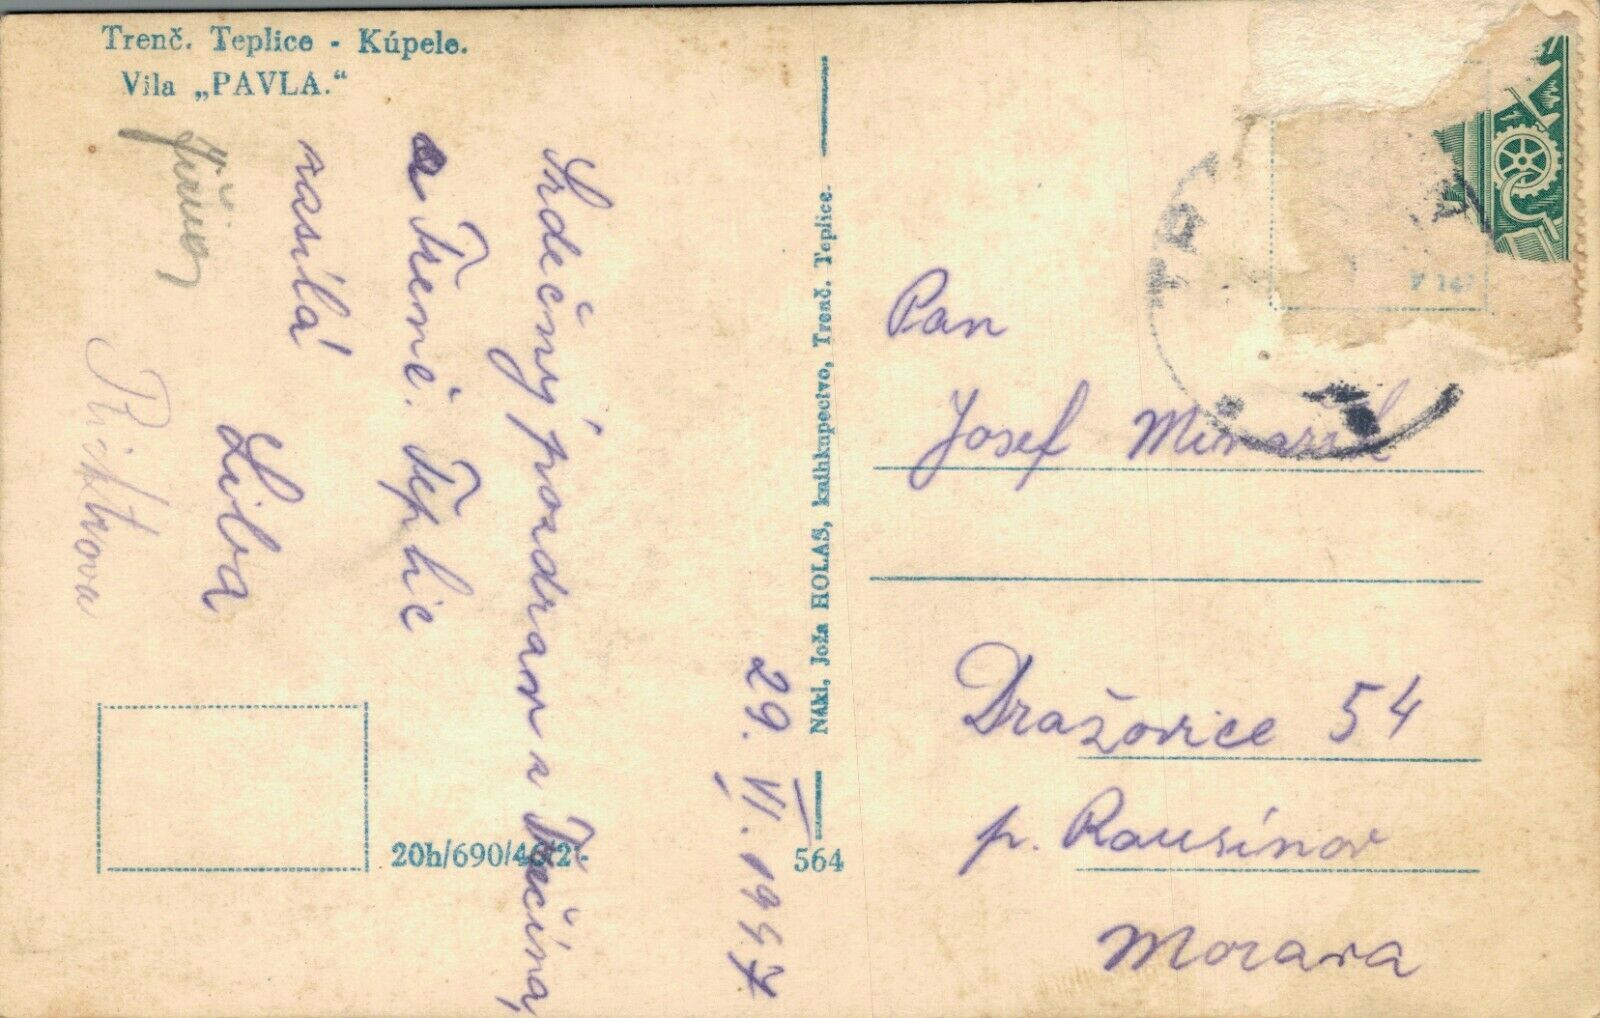 Trenč. Teplice - Kúpele.
Vila „PAVLA."
Srdečný pozdram z Třečína,
a Trenč. Teplic
zasílá
Liba
Richtrova
29. VI. 1947
Nákl. Joža HOLAS, knihkupectvo, Trenč. Teplice.
564
20h/690/46/2-
Pan
Josef
Dražovice 54
p. Rousínov
Morava